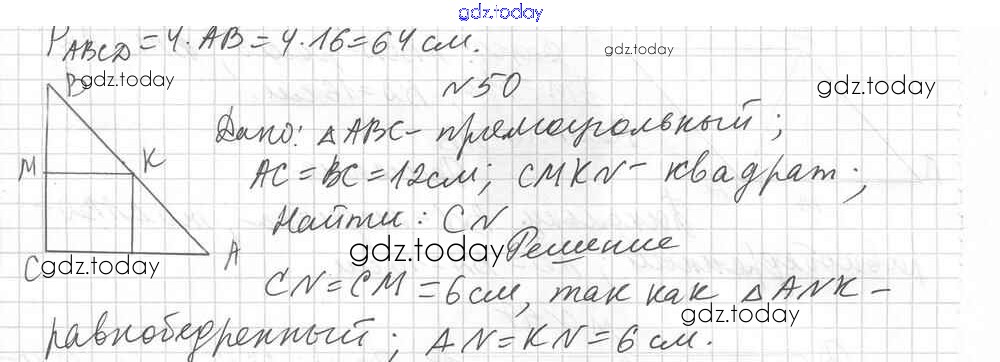 gdz.today
P ABCD = 4 · AB = 4 · 16 = 64 см.
gdz.today
B
gdz.today
№50
gdz.today
Дано: △ABC - прямоугольный;
M
K
AC = BC = 12 см; CMKN - квадрат;
Найти: CN
C
gdz.today
A
gdz.today
Решение
CN = CM = 6 см, так как △ANK -
gdz.today
равнобедренный; AN = KN = 6 см.